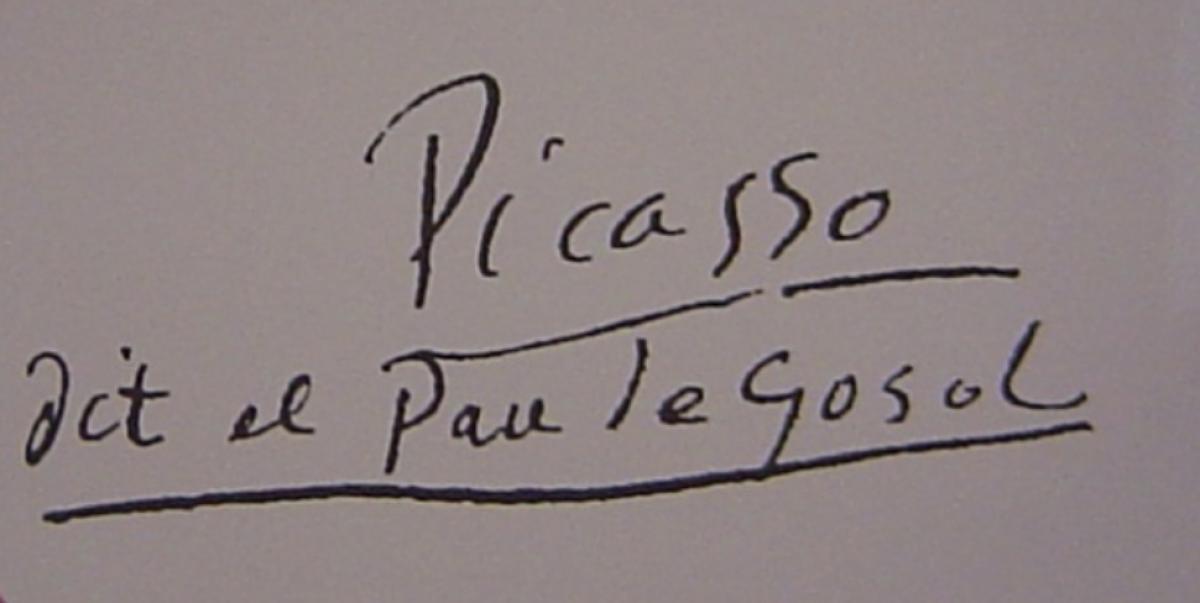 Picasso
dit el Pau de Gosol